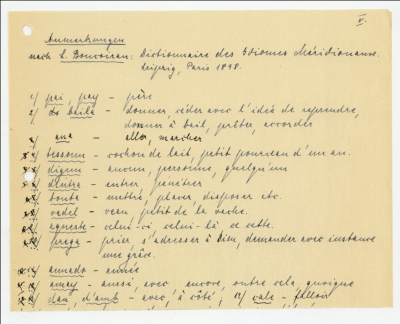 V.
Anmerkungen
nach L. Boucoiran: Dictionnaire des Idiomes Méridionaux.
Leipzig, Paris 1898.
1/ pai, pay - père
2/ de baila - donner, céder avec l'idée de reprendre,
donner à bail, prêter, accorder
3/ ana - aller, marcher
4/ bessoun - cochon de lait, petit pourceau d'un an.
5/ digun - aucun, personne, quelqu'un
6/ dintra - entrer, pénétrer
7/ bouta - mettre, placer, disposer etc.
8/ vedel - veau, petit de la vache.
9/ aqueste - celui-ci, celui-là, ce cette.
10/ prega - prier, s'adresser à Dieu, demander avec instance
une grâce.
11/ annado - année
12/ amay - aussi, avec, encore, outre cela, quoique
13/ dau, d'amb - avec, à côté, 14/ cale - falloir